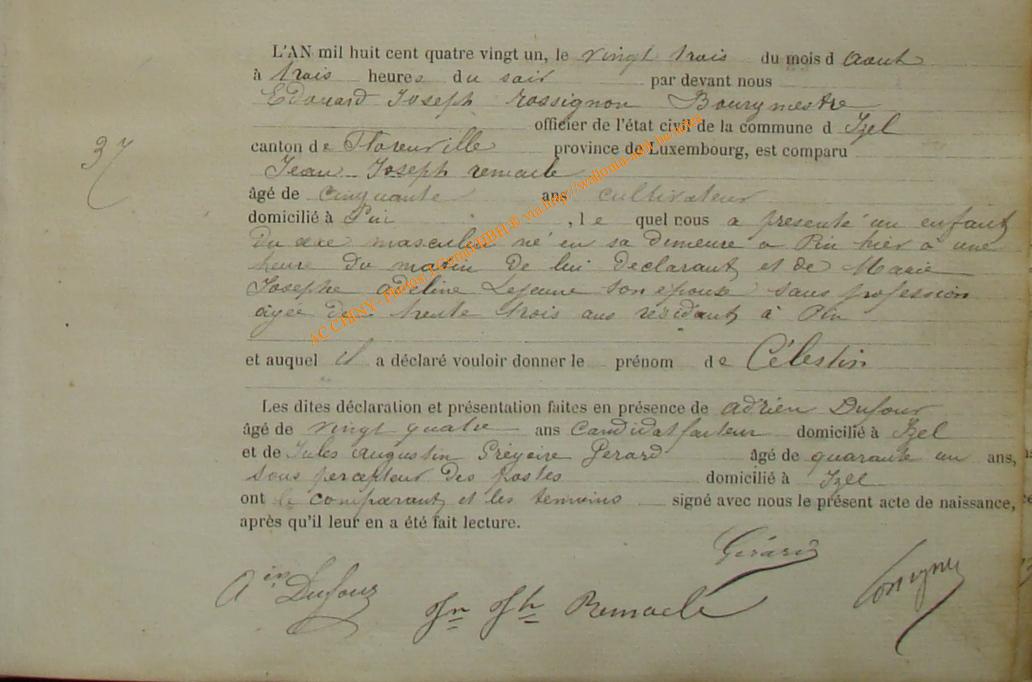 L'AN mil huit cent quatre vingt un, le vingt trois du mois d Aout
à trois heures du soir par devant nous
Edouard Joseph Rossignon Bourgmestre
officier de l'état civil de la commune d Izel
canton de Florenville province de Luxembourg, est comparu
37
Jean Joseph remacle
âgé de cinquante ans cultivateur
domicilié à Pin , le quel nous a présenté un enfant
du sexe masculin né en sa demeure a Pin hier a une
heure du matin de lui declarant et de Marie
Josephe Adeline Lejeune son epouse sans profession
agée de trente trois ans résidant à Pin
et auquel il a déclaré vouloir donner le prénom de Célestin
Les dites déclaration et présentation faites en présence de Adrien Dufour
âgé de vingt quatre ans candidat facteur domicilié à Izel
et de Jules Augustin Grégoire Gerard âgé de quarante un ans,
sous percepteur des postes domicilié à Izel
ont le comparant et les temoins signé avec nous le présent acte de naissance,
après qu'il leur en a été fait lecture.
Gérard
Ain Dufour Jn Jh Remacle